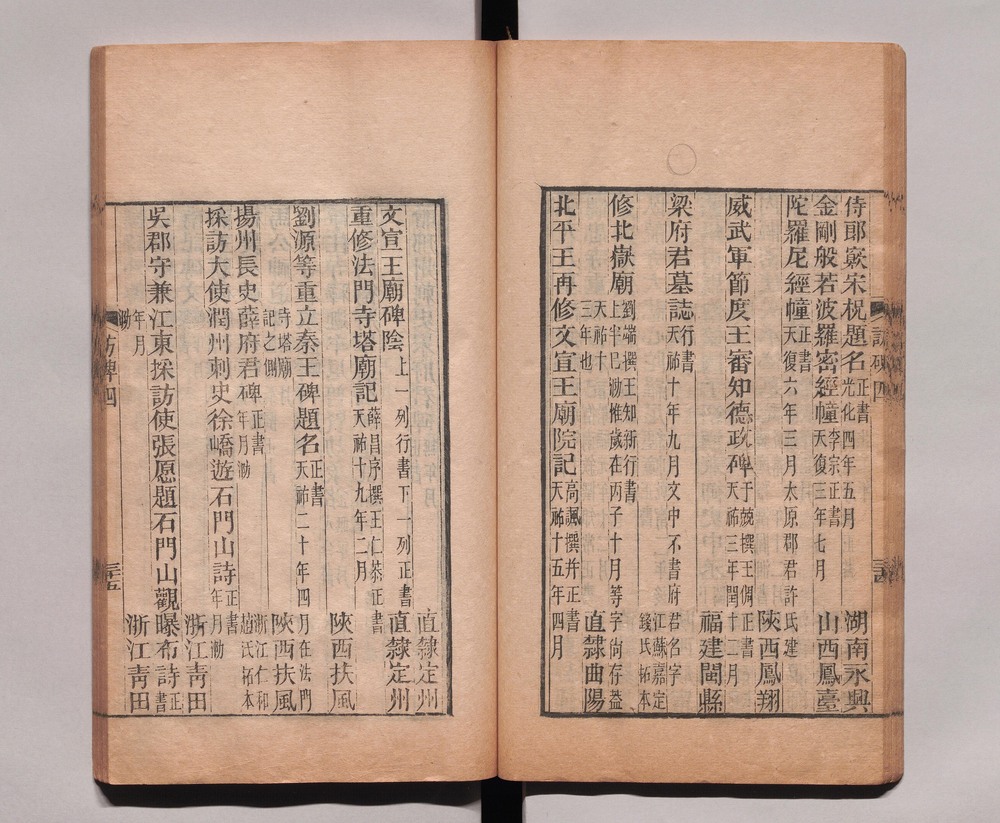 侍郎窾宋祝題名 正書 光化四年五月 湖南永興
金剛般若波羅密經幢 李宗正書 天復三年七月 山西鳳臺
陀羅尼經幢 正書 天復六年三月太原郡君許氏建 陝西鳳翔
威武軍節度王審知德政碑 于兢撰王倜正書 天祐三年閏十二月 福建閩縣
梁府君墓誌 行書 天祐十年九月文中不書府君名字 江蘇嘉定錢氏拓本
修北嶽廟 劉端撰王知新行書 上半已泐惟歲在丙子十月等字尚存益天祐十三年也 直隸曲陽
北平王再修文宣王廟院記 高諷撰并正書 天祐十五年四月
直隸定州
文宣王廟碑陰 上一列行書下一列正書 直隸定州
重修法門寺塔廟記 薛昌序撰王仁恭正書 天祐十九年二月 陝西扶風
劉源等重立秦王碑題名 正書 天祐二十年四月在法門寺塔廟記之側 陝西扶風
揚州長史薛府君碑 正書 年月泐 浙江仁和趙氏拓本
採訪大使潤州刺史徐嶠遊石門山詩 正書 年月泐 浙江靑田
吳郡守兼江東採訪使張愿題石門山觀曝布詩 正書 年月泐 浙江靑田
訪碑四
三五